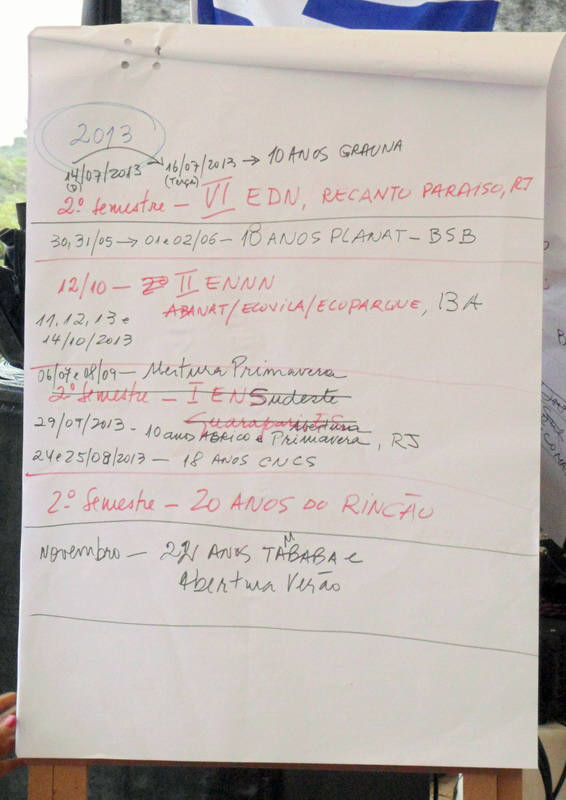 2013
14/07/2013 → 16/07/2013 → 10 ANOS GRAUNA
(D) (Terça)
2º Semestre – VI EDN, RECANTO PARAISO, RJ
30, 31/05 → 01 e 02/06 – 18 ANOS PLANAT – BSB
12/10 – II ENNN
ABANAT/ECOVILA/ECOPARQUE, BA
11, 12, 13 e
14/10/2013
06/07 e 08/09 – Abertura Primavera
2º Semestre – I EN Sudeste
Guarapari ES
29/09/2013 – 10 anos ABRICO e Abertura Primavera, RJ
24 e 25/08/2013 – 18 ANOS CNCS
2º Semestre – 20 ANOS DO RINCÃO
Novembro – 22 ANOS TAMBABA e
Abertura Verão